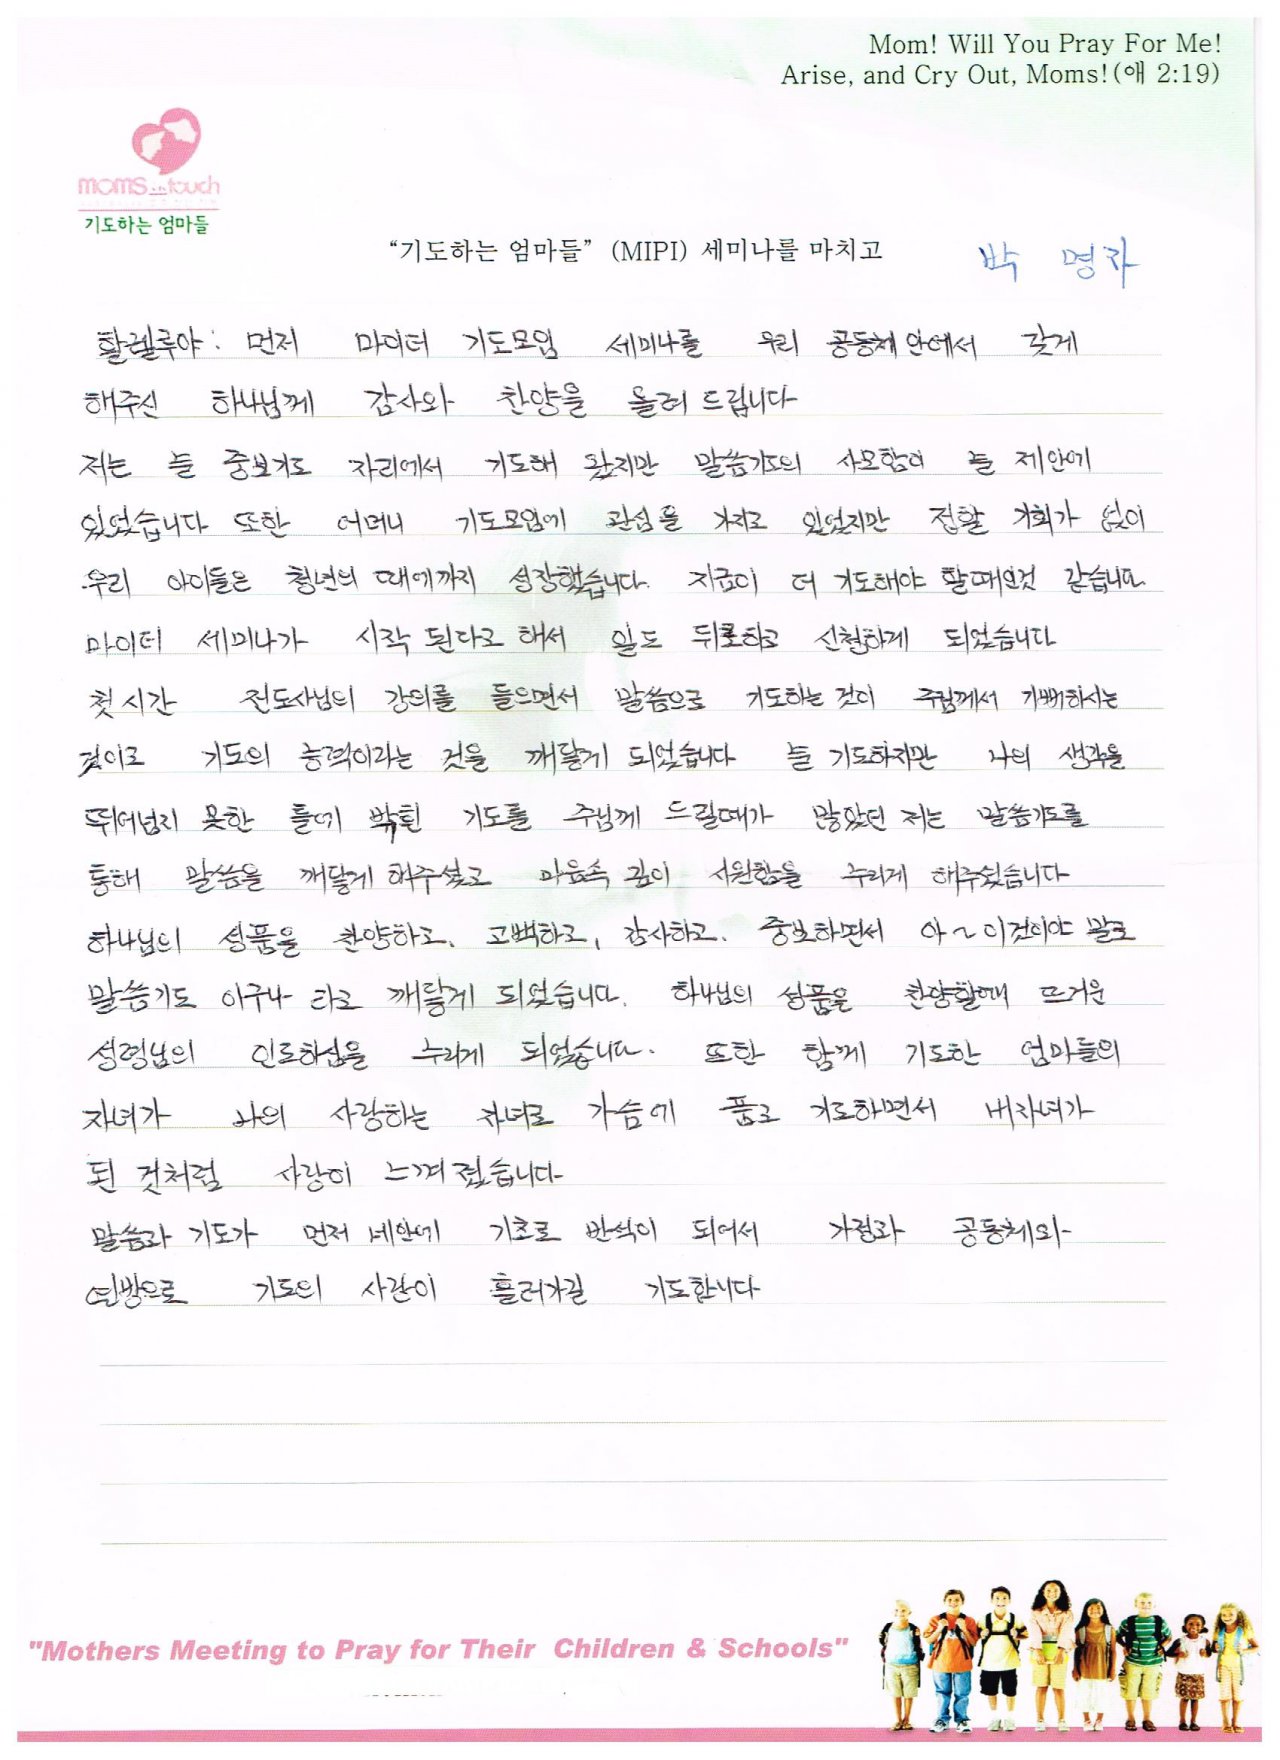 Mom! Will You Pray For Me!
Arise, and Cry Out, Moms!(애 2:19)
moms in touch
기도하는 엄마들
“기도하는 엄마들” (MIPI) 세미나를 마치고 박 명자
할렐루야: 먼저 마미터 기도모임 세미나를 우리 공동체 안에서 갖게
해주신 하나님께 감사와 찬양을 올려 드립니다
저는 늘 중보기도 자리에서 기도해 왔지만 말씀기도의 사모함이 늘 제안에
있었습니다 또한 어머니 기도모임에 관심을 가지고 있었지만 접할 기회가 없이
우리 아이들은 청년의 때에까지 성장했습니다. 지금이 더 기도해야 할때인것 같습니다
마미터 세미나가 시작 된다고 해서 일도 뒤로하고 신청하게 되었습니다
첫시간 전도사님의 강의를 들으면서 말씀으로 기도하는 것이 주님께서 기뻐하시는
것이고 기도의 능력이라는 것을 깨닫게 되었습니다 늘 기도하지만 나의 생각을
뛰어넘지 못한 틀에 박힌 기도를 주님께 드릴때가 많았던 저는 말씀기도를
통해 말씀을 깨닫게 해주셨고 마음속 깊이 시원함을 누리게 해주셨습니다
하나님의 성품을 찬양하고, 고백하고, 감사하고, 중보하면서 아~이것이야 말로
말씀기도 이구나 라고 깨닫게 되었습니다. 하나님의 성품을 찬양할때 뜨거운
성령님의 인도하심을 누리게 되었습니다. 또한 함께 기도한 엄마들의
자녀가 나의 사랑하는 자녀로 가슴에 품고 기도하면서 내자녀가
된 것처럼 사랑이 느껴졌습니다
말씀과 기도가 먼저 네안에 기초로 반석이 되어서 가정과 공동체와
열방으로 기도의 사관이 흘러가길 기도합니다
"Mothers Meeting to Pray for Their Children & Schools"